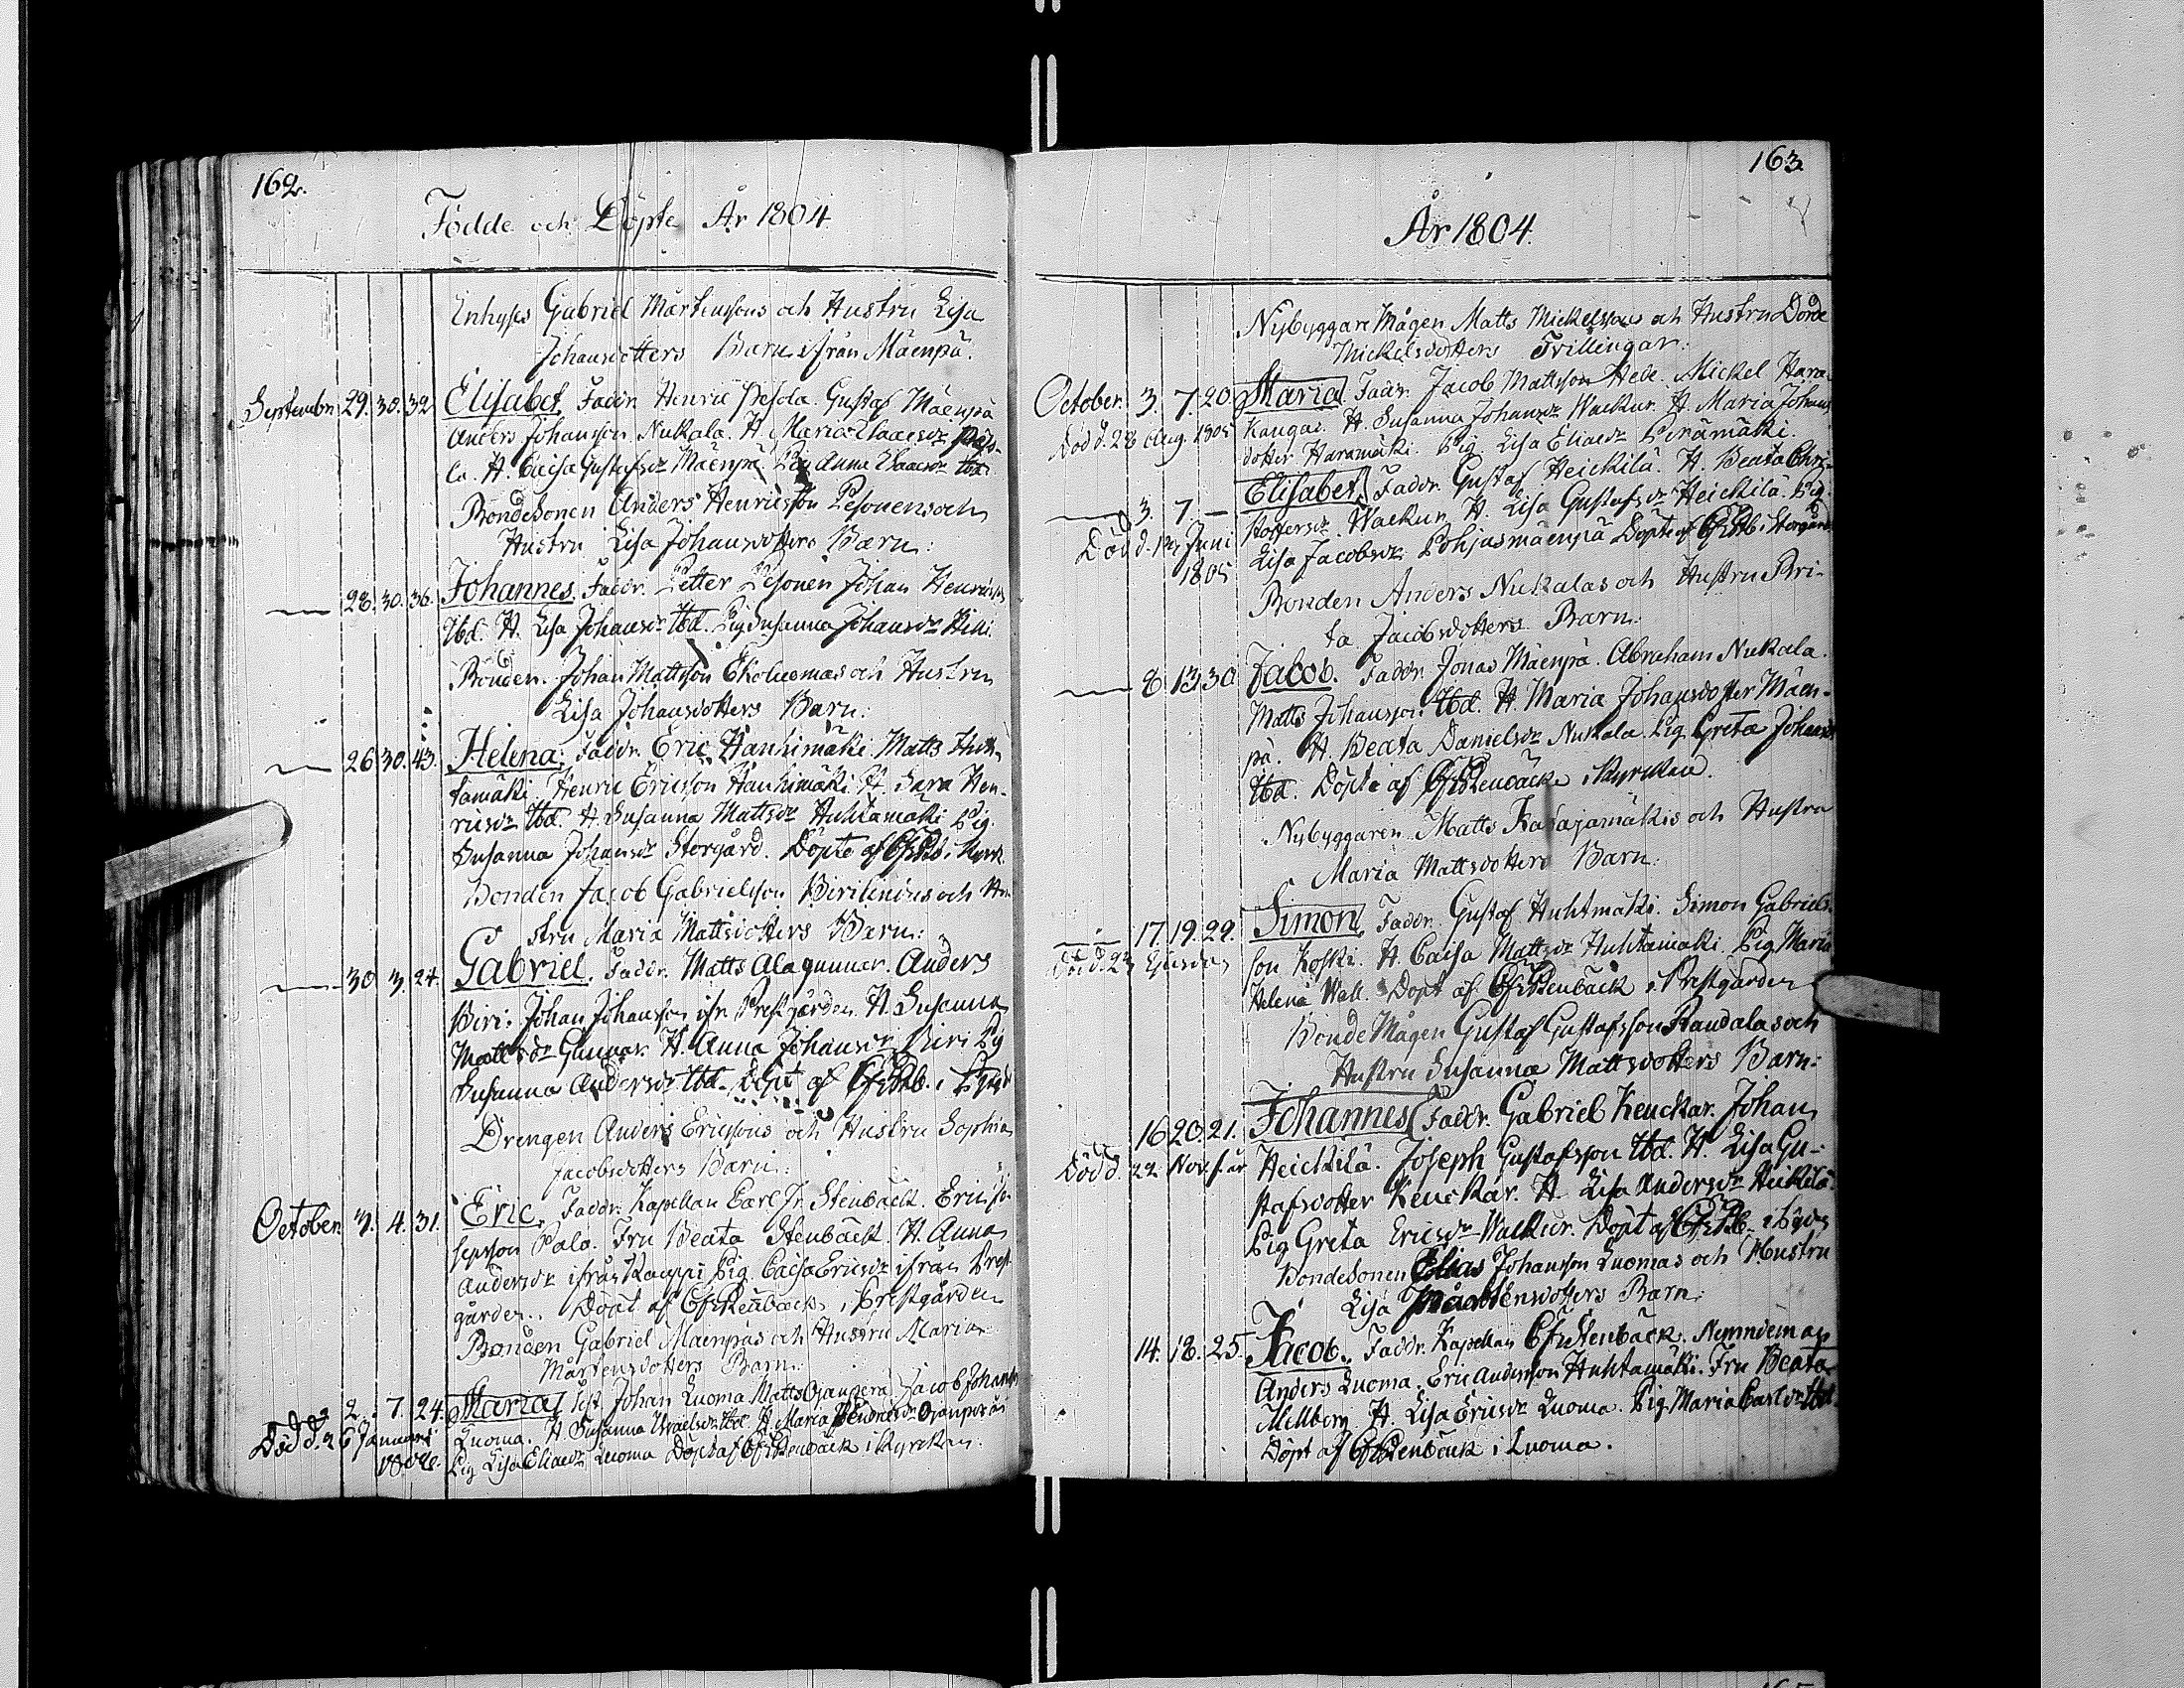 162.
Födde och Döpte År 1804.
Enhyses Gabriel Mårtenssons och Hustru Lisa
Johansdotters Barn ifrån Mäenpä.
September 29. 30. 32 Elisabet. Faddr. Henric Pesola. Gustaf Mäenpä
Anders Johansson Nukala. H. Maria Isaacsdr Peso-
la. H. Caisa Gustafsdr Mäenpä. Pig Anna Isaacsdr Ibd.
Bondesonen Anders Henricsson Pesonens och
Hustru Lisa Johansdotters Barn:
28. 30. 36. Johannes. Faddr. Petter Pesonen Johan Henricss
Ibd. H. Lisa Johansdr Ibd. Pig Susanna Johansdr
Bonden Johan Mattsson Ekoluomas och Hustru
Lisa Johansdotters Barn:
26. 30. 43. Helena. Faddr. Eric Hanhimäki. Matts Huh-
tamäki. Henric Ericsson Hanhimäki. H. Sara Hen-
ricsdr Ibd. H. Susanna Mattsdr Huhtamäki Pig.
Susanna Johansdr Storgård. Döpte af i Kyrk.
Bonden Jacob Gabrielsson och Hu-
stru Maria Mattsdotters Barn:
30 3. 24. Gabriel. Faddr. Matts Alagunnar. Anders
Johan Johansson ifr. Prestgården. H. Susanna
Mattsdr Gunnar. H. Anna Johansdr Pig
Susanna Andersdr Ibd. Döpt af i
Drengen Anders Ericssons och Hustru Sophia
Jacobsdotters Barn:
October. 3. 4. 31. Eric. Faddr. Kapellan Carl Fr. Stenbäck. Eric Jo-
sepsson Palo. Fru Beata Stenbäck. H. Anna
Andersdr ifrån Kauppi Pig. Caisa Ericsdr ifrån Prest-
gården. Döpt af Stenbäck i Prestgården
Bonden Gabriel Mäenpäs och Hustru Maria
Mårtensdotters Barn:
2. 7. 24. Maria Test. Johan Luoma Matts Ojanperä. Jacob Johanss
Död d. 26 Januari Luoma. H. Susanna Israelsdr Ibd. H. Maria Henricsdr Ojanperä
Pig Lisa Eliaedr Luoma Döpt af Stenbäck i Kyrkan.
163
År 1804.
Nybyggare Mågen Matts Mickelssons och Hustru Dorde
Mickelsdotters Tvillingar:
October. 3. 7. 20. Maria. Faddr. Jacob Mattsson Hede. Mickel Hara-
Död d. 28 Aug. 1805 kangas. H. Susanna Johansdr Wackur. H. Maria Johans
dotter Haramäki. Pig. Lisa Eliaedr Peramäki.
3. 7. — Elisabet. Faddr. Gustaf Heickilä. H. Beata Chri-
stoffersdr Wackur. H. Lisa Gustafsdr Heickilä. Pig.
Död d. Juni 1805 Lisa Jacobsdr Pohjasmäenpä Döpte af i Storgård
Bonden Anders Nukalas och Hustru Bri-
ta Jacobsdotters Barn:
8. 13. 30 Jacob. Faddr. Jonas Mäenpä. Abraham Nukala.
Matts Johansson Ibd. H. Maria Johansdotter Mäen-
pä. H. Beata Danielsdr Nukala. Pig Greta Johansd
Ibd. Döpte af Stenbäck i Kyrckan.
Nybyggaren Matts Katajamäkis och Hustru
Maria Mattsdotters Barn:
17. 19. 29. Simon. Faddr. Gustaf Huhtmäki. Simon Gabriels-
Död d. 23 Ejusdem son Koski. H. Caisa Mattsdr Huhtamäki. Pig Maria
Helena Wall. Döpt af Stenbäck i Prestgården
Bonde Mågen Gustaf Gustafsson Raudalas och
Hustru Susanna Mattsdotters Barn:
16 20. 21. Johannes Faddr. Gabriel Keuckar. Johan
Död d. 22 Nov. s. år Heickilä. Joseph Gustafsson Ibd. H. Lisa Gu-
stafsdotter Keuckar. H. Lisa Andersdr Heickilä.
Pig Greta Ericsdr Wackur. Döpt af i Byen
Bondesonen Elias Johansson Luomas och Hustru
Lisa Mårtensdotters Barn:
14. 18. 25. Jacob. Faddr. Kapellan Stenbäck. Nemndeman
Anders Luoma. Eric Andersson Huhtamäki. Fru Beata
Mellberg. H. Lisa Ericsdr Luoma. Pig Maria Carlsdr Ibd.
Döpt af Stenbäck i Luoma.